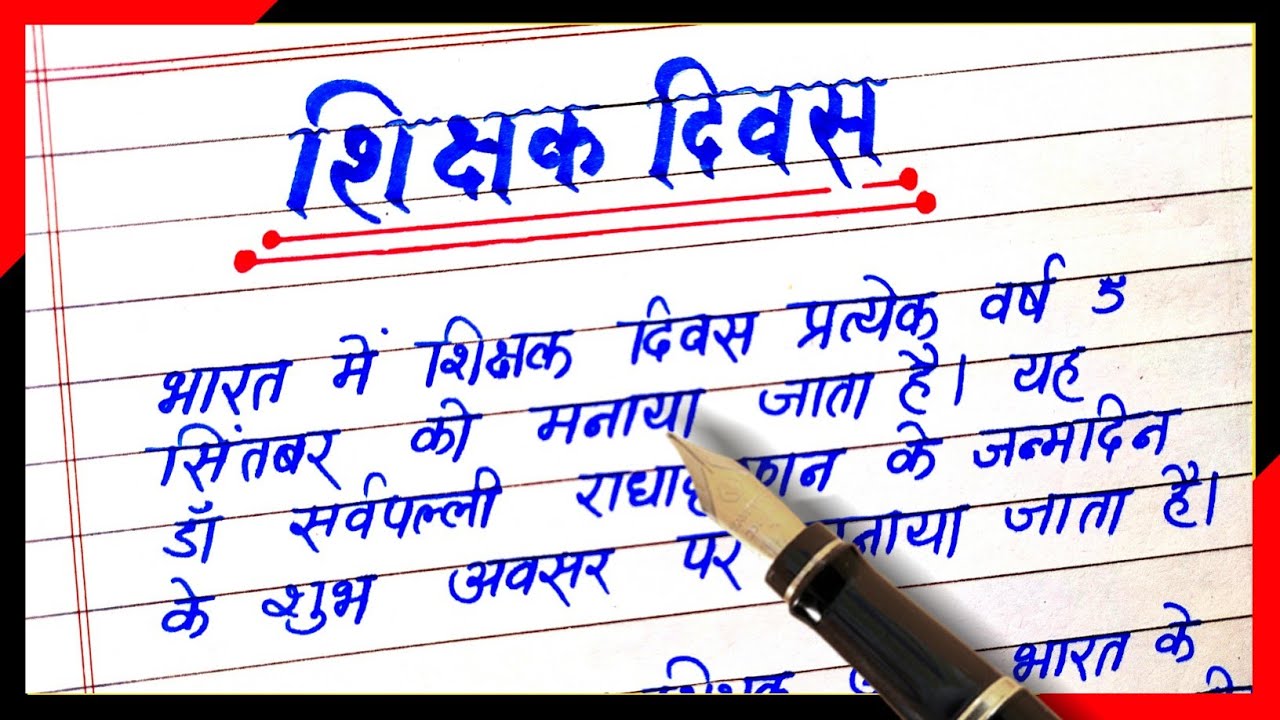 शिक्षक दिवस
भारत में शिक्षक दिवस प्रत्येक वर्ष 5
सिंतबर को मनाया जाता है। यह
डॉ सर्वपल्ली के जन्मदिन
के शुभ अवसर पर जाता है।
भारत के